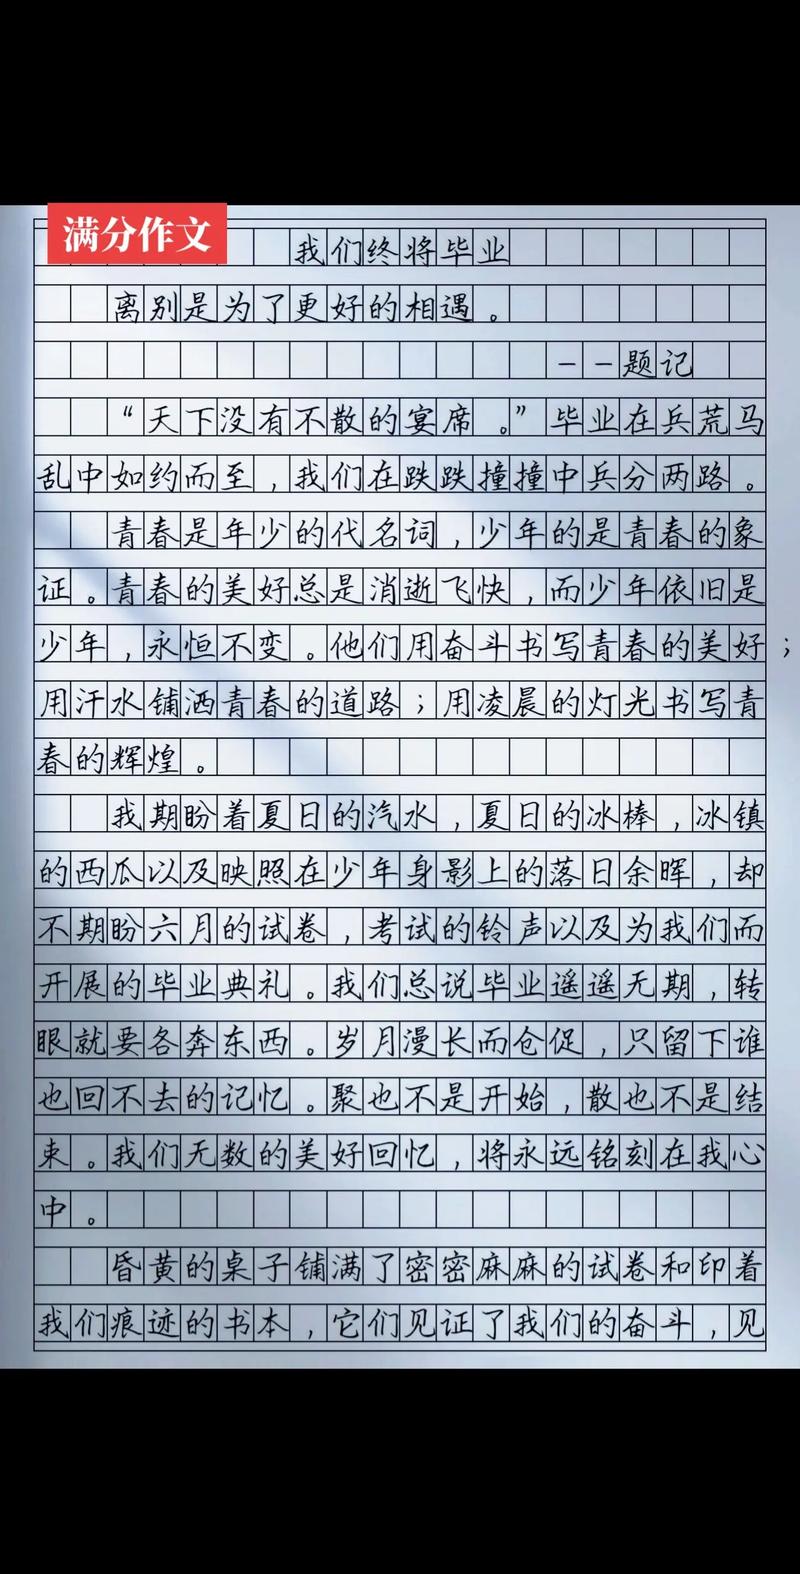 满分作文
我们终将毕业
离别是为了更好的相遇。
--题记
“天下没有不散的宴席。”毕业在兵荒马
乱中如约而至，我们在跌跌撞撞中兵分两路。
青春是年少的代名词，少年的是青春的象
证。青春的美好总是消逝飞快，而少年依旧是
少年，永恒不变。他们用奋斗书写青春的美好；
用汗水铺洒青春的道路；用凌晨的灯光书写青
春的辉煌。
我期盼着夏日的汽水，夏日的冰棒，冰镇
的西瓜以及映照在少年身影上的落日余晖，却
不期盼六月的试卷，考试的铃声以及为我们而
开展的毕业典礼。我们总说毕业遥遥无期，转
眼就要各奔东西。岁月漫长而仓促，只留下谁
也回不去的记忆。聚也不是开始，散也不是结
束。我们无数的美好回忆，将永远铭刻在我心
中。
昏黄的桌子铺满了密密麻麻的试卷和印着
我们痕迹的书本，它们见证了我们的奋斗，见